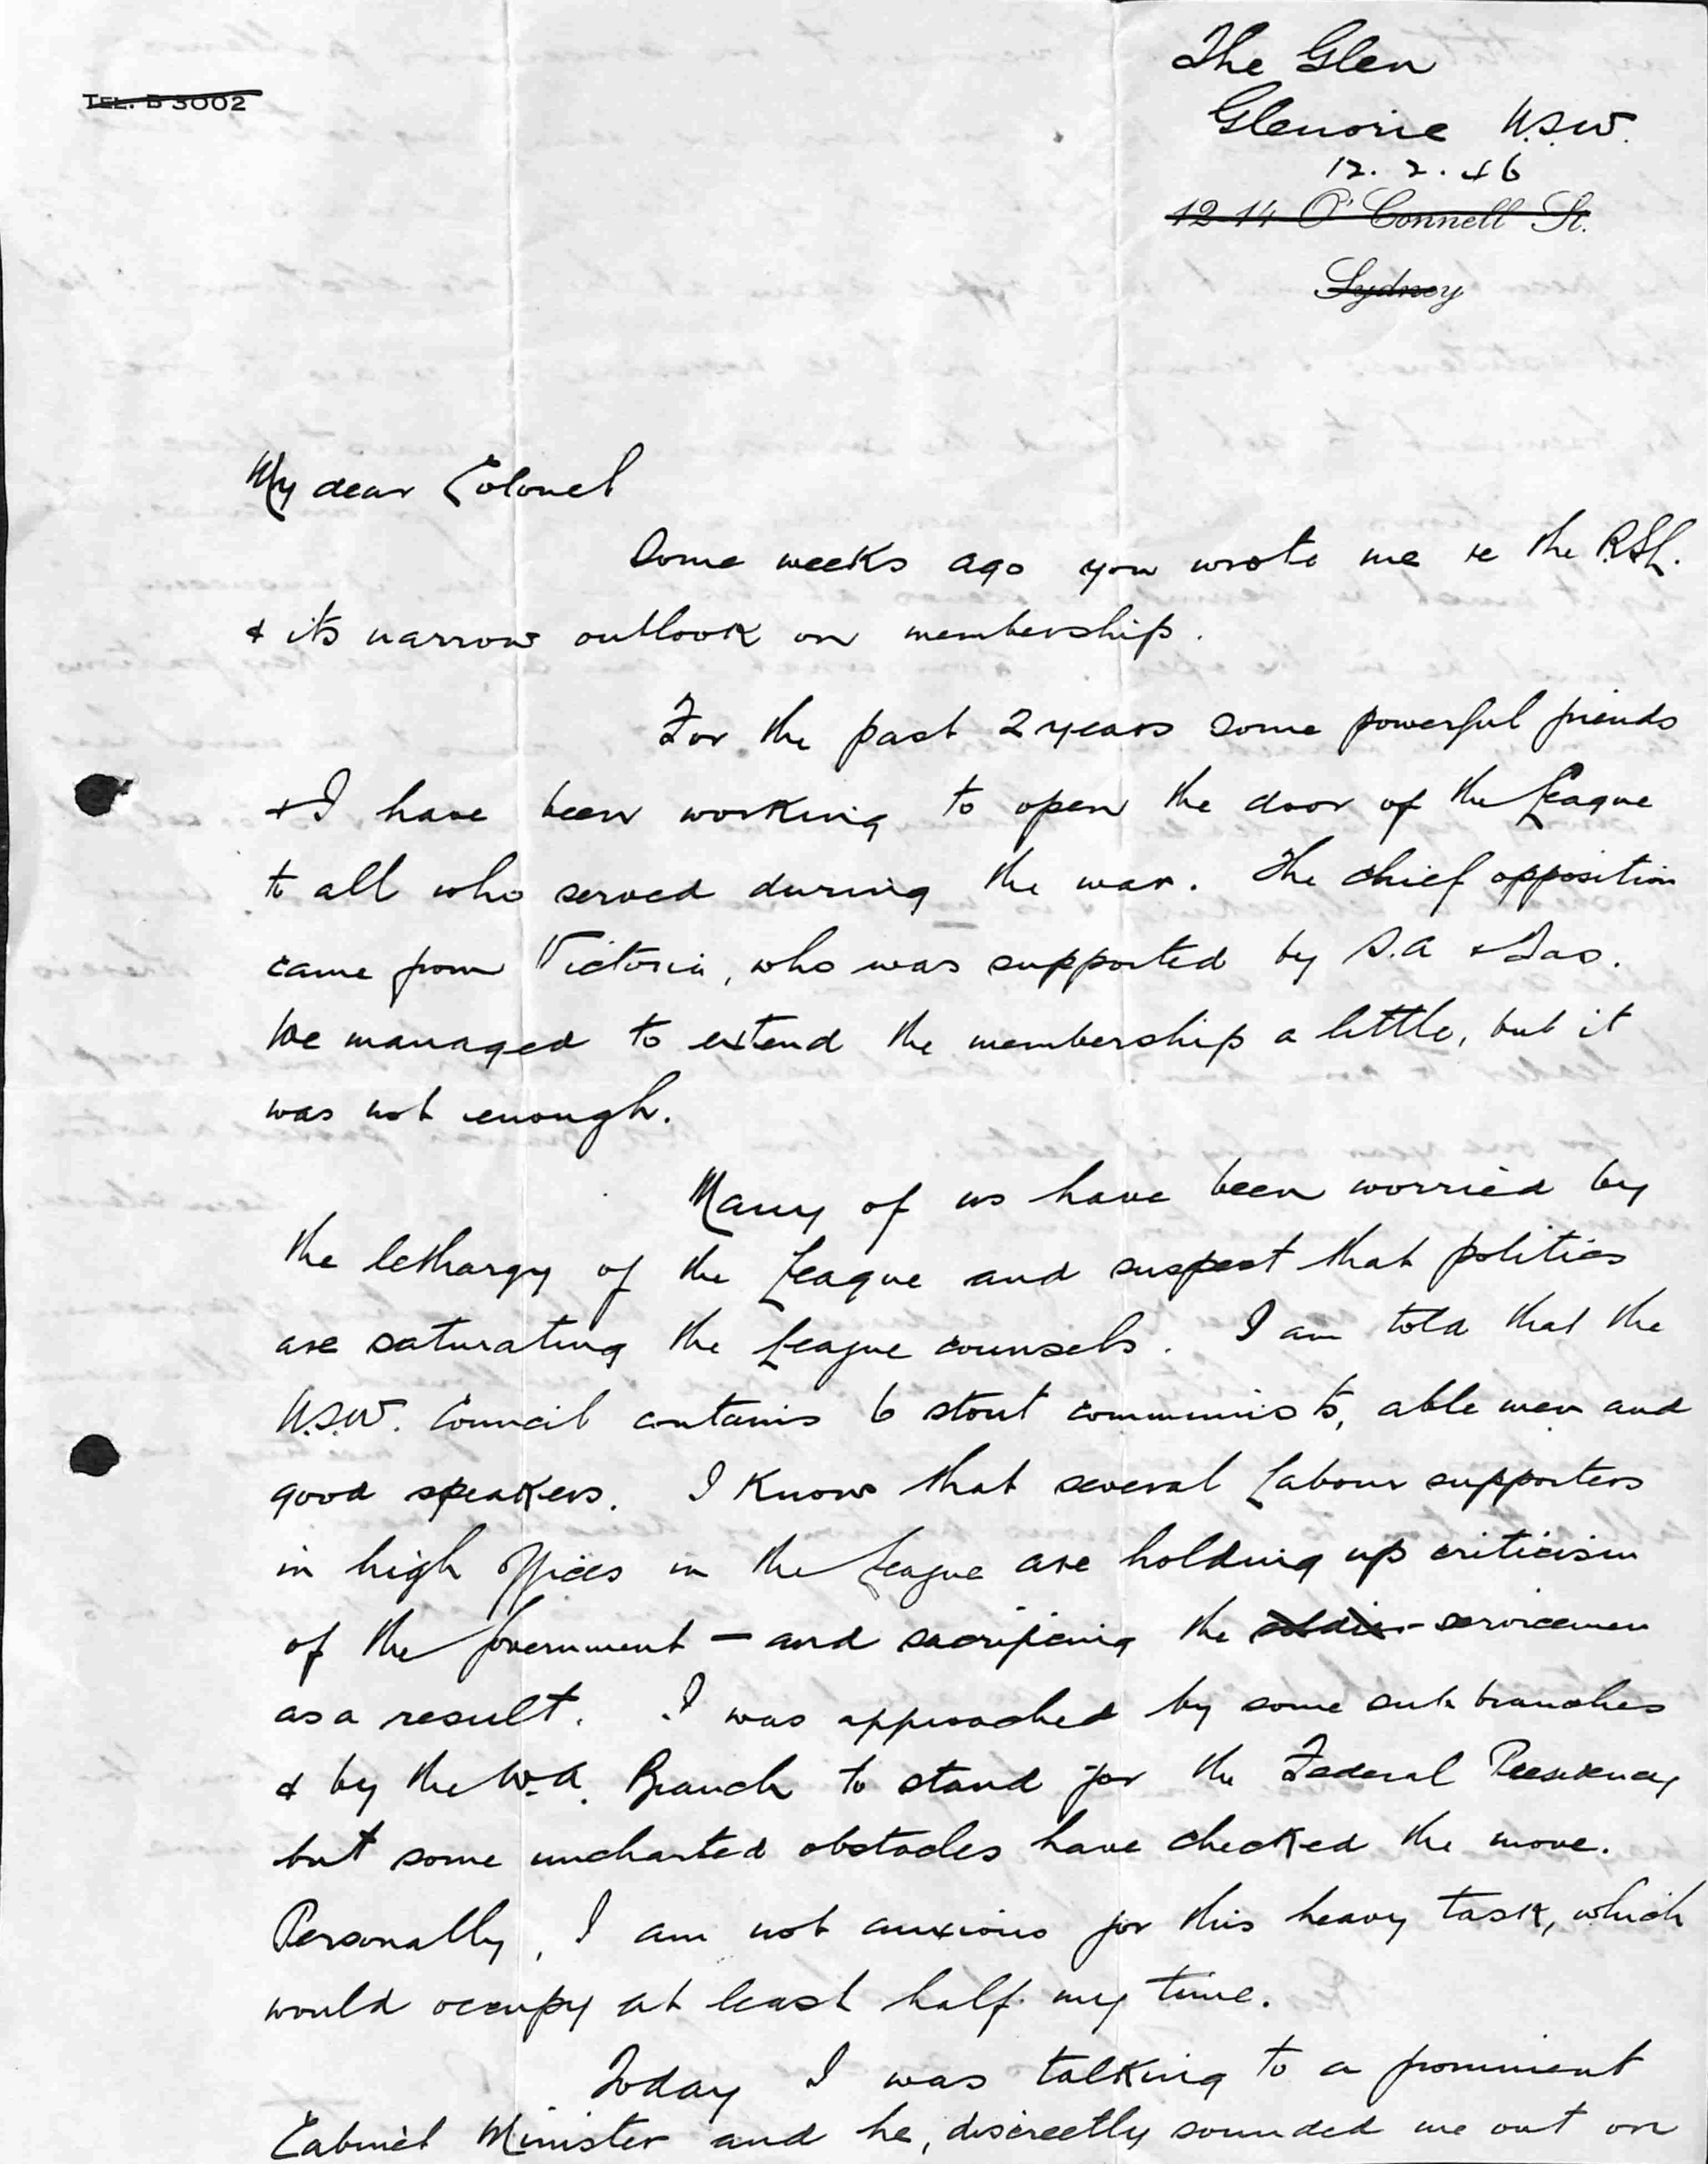 TEL. B 3002
The Glen
Glenorie N.S.W.
12.2.46
12-14 O'Connell St.
Sydney
My dear Colonel
Some weeks ago you wrote me re the R.S.L.
& its narrow outlook on membership.
For the past 2 years some powerful friends
& I have been working to open the door of the League
to all who served during the war. The chief opposition
came from Victoria, who was supported by S.A & Tas.
We managed to extend the membership a little, but it
was not enough.
Many of us have been worried by
the lethargy of the League and suspect that politics
are saturating the League counsels. I am told that the
N.S.W. Council contains 6 stout communists, able men and
good speakers. I know that several Labour supporters
in high offices in the League are holding up criticism
of the Government — and sacrificing the servicemen
as a result. I was approached by some sub branches
& by the W.A. Branch to stand for the Federal Presidency
but some uncharted obstacles have checked the move.
Personally, I am not anxious for this heavy task, which
would occupy at least half my time.
Today I was talking to a prominent
Cabinet Minister and he, discreetly sounded me out on